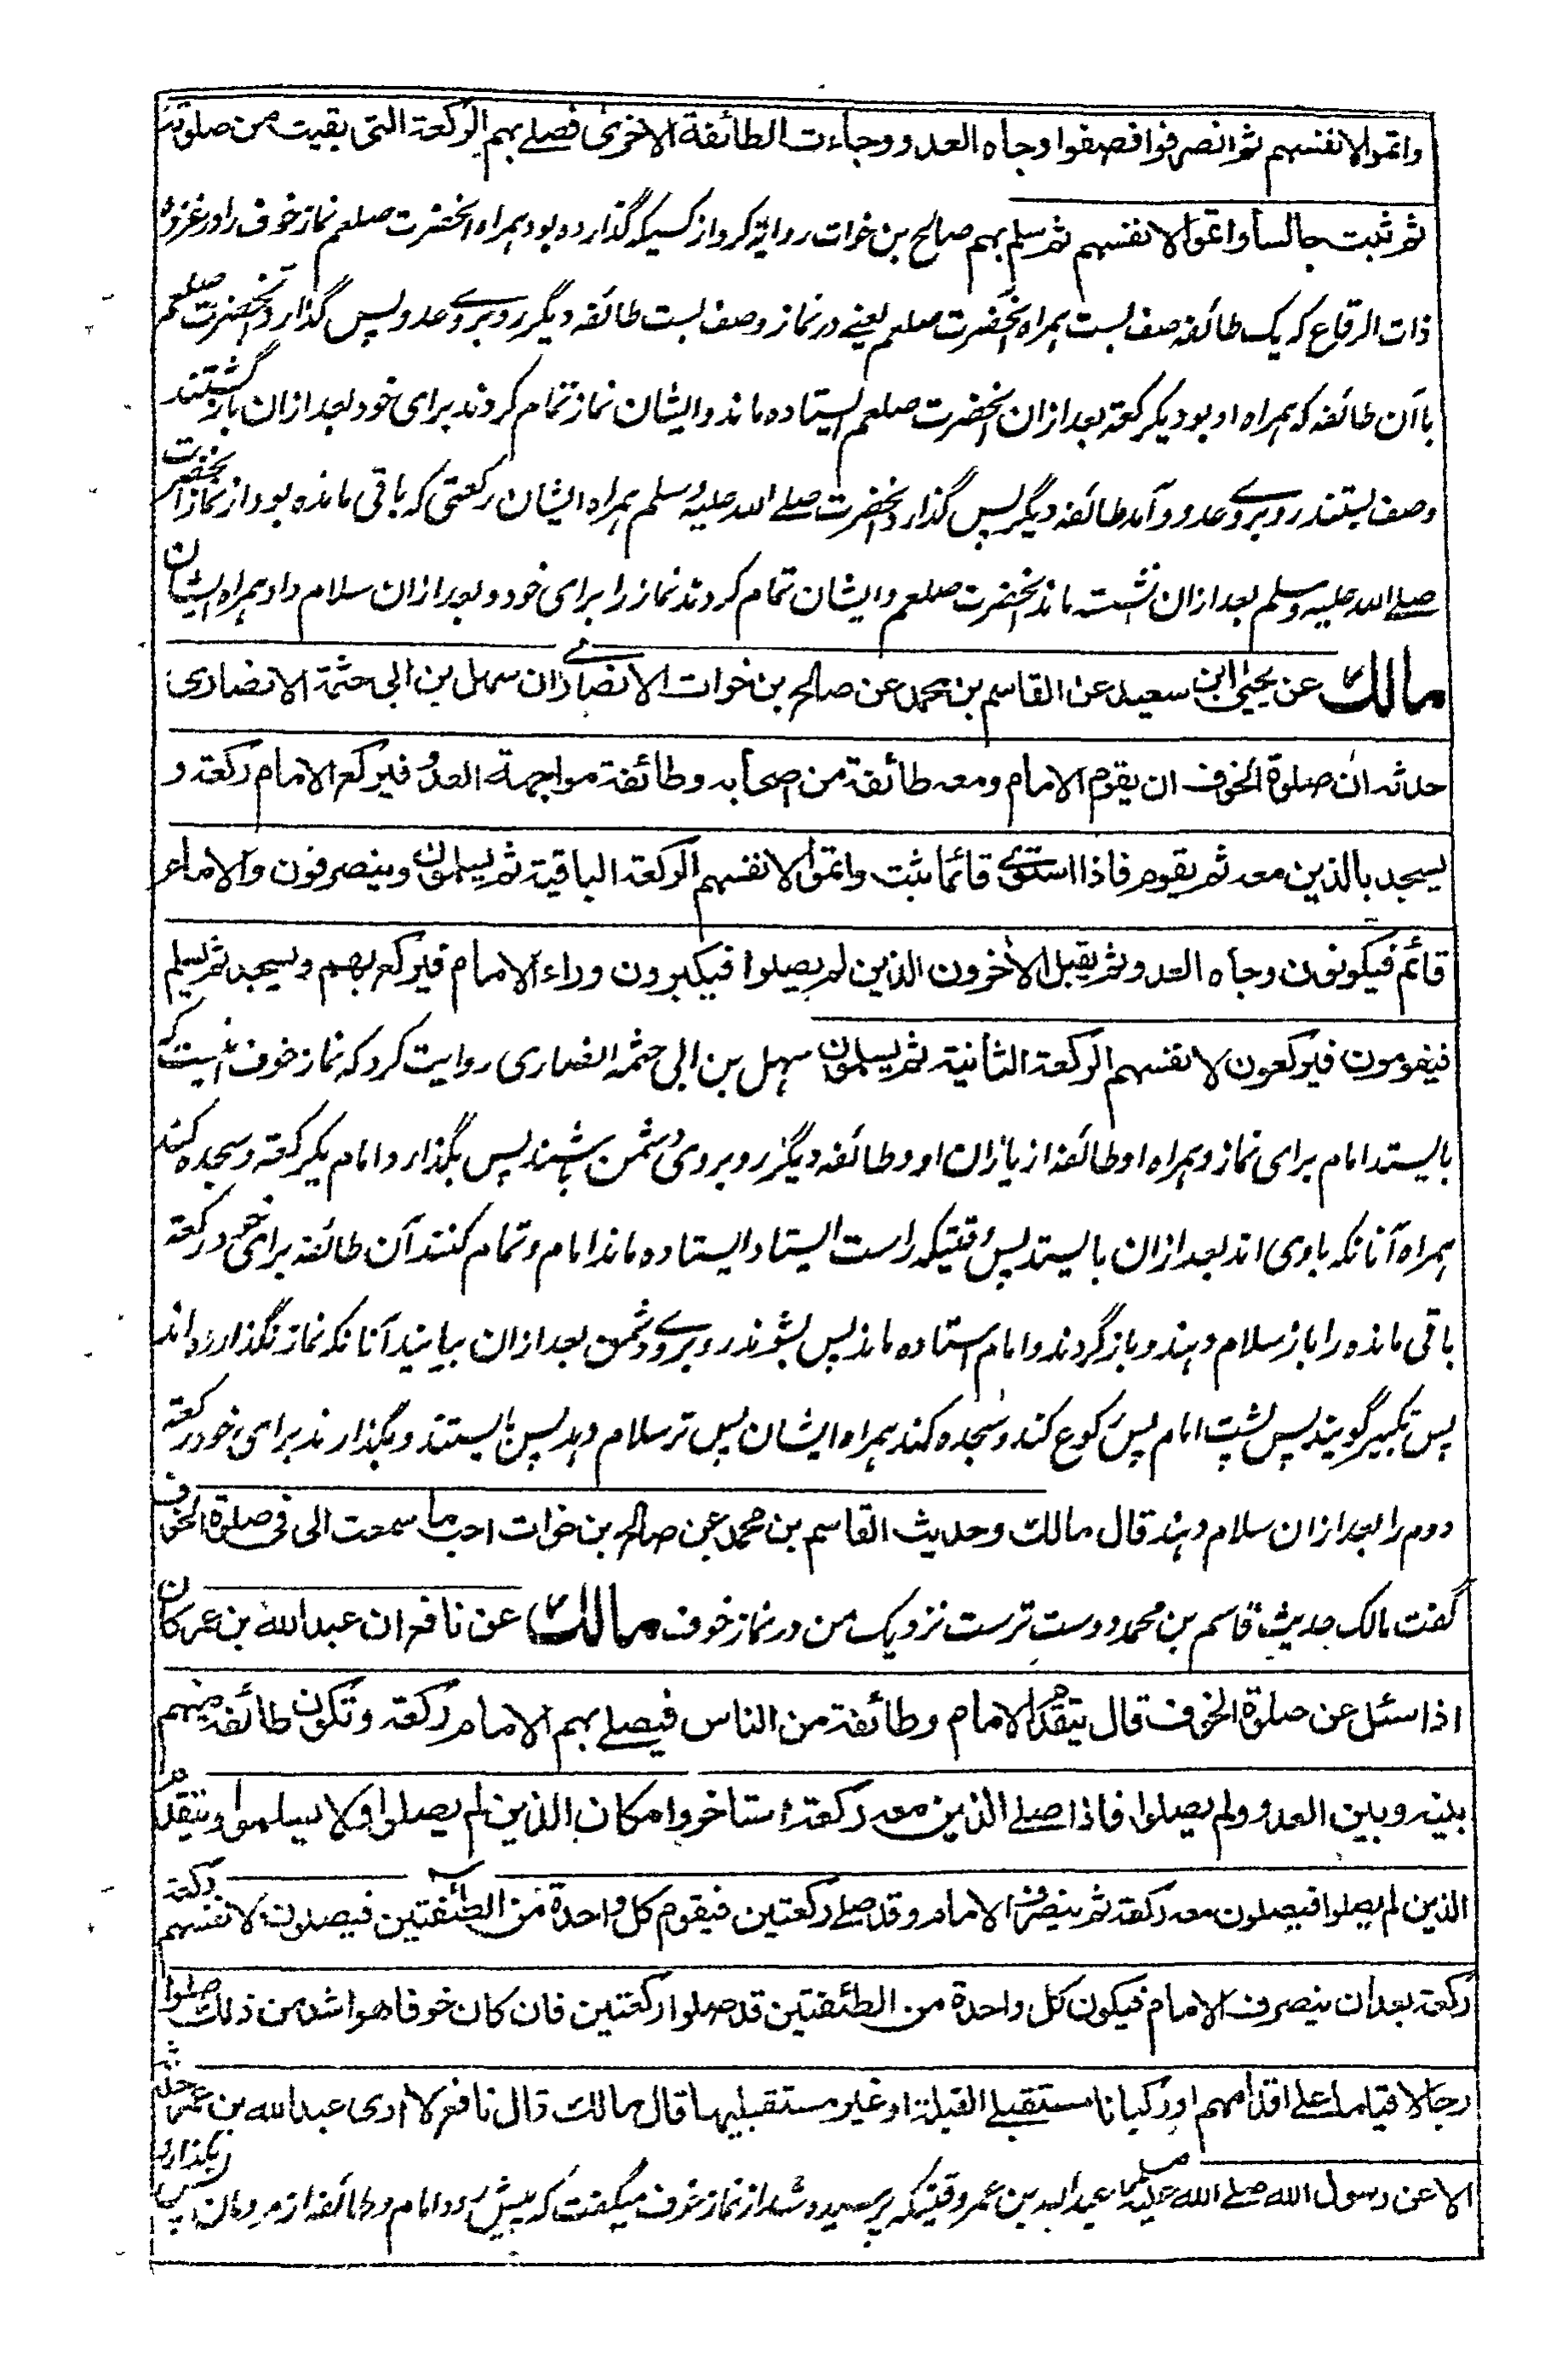 واتموا لانفسهم ثم انصرفوا فصفوا وجاه العدو وجاءت الطائفة الاخرى فصلے بهم الركعة التى بقيت من صلوته
ثم ثبت جالسا واتموا لانفسهم ثم سلم بهم صالح بن خوات روایة کرد از کسیکه گذارده بود همراه آنحضرت صلعم نماز خوف را در غزوه
ذات الرقاع که یک طائفه صف بست همراه آنحضرت صلعم یعنے در نماز و صف بست طائفه دیگر روبروے عدو پس گذارد آنحضرت صلعم
باآن طائفه که همراه او بود یکرکعة بعد ازان آنحضرت صلعم ایستاده ماند و ایشان نماز تمام کردند برای خود بعد ازان بازگشتند
و صف بستند روبروے عدو و آمد طائفه دیگر پس گذارد آنحضرت صلے الله علیه وسلم همراه ایشان رکعتی که باقی مانده بود از نماز آنحضرت
صلے الله علیه وسلم بعد ازان نشسته ماند آنحضرت صلعم و ایشان تمام کردند نماز را برای خود و بعد ازان سلام داد همراه ایشان
مالك عن يحيى ابن سعيد عن القاسم بن محمد عن صالح بن خوات الانصارے ان سهل بن ابى حثمة الانصارى
حدثه ان صلوة الخوف ان يقوم الامام ومعه طائفة من اصحابه وطائفة مواجهة العدو فيركع الامام ركعة و
يسجد بالذين معه ثم يقوم فاذا استوى قائما ثبت واتموا لانفسهم الركعة الباقية ثم يسلمون وينصرفون والامام
قائم فيكونون وجاه العدو ثم يقبل الاخرون الذين لم يصلوا فيكبرون وراء الامام فيركع بهم ويسجد ثم يسلم
فيقومون فيركعون لانفسهم الركعة الثانية ثم يسلمون سهل بن ابی حثمه انصاری روایت کرد که نماز خوف آنست که
بایستد امام برای نماز و همراه او طائفه از یاران او و طائفه دیگر روبروی دشمن باشند پس بگذارد امام یکرکعة و سجده کند
همراه آنانکه باوی اند بعد ازان بایستد پس وقتیکه راست ایستاد ایستاده ماند امام و تمام کنند آن طائفه برای خود رکعة
باقی مانده را باز سلام دهند و باز گردند و امام استاده ماند پس بشوند روبروے دشمن بعد ازان بیایند آنانکه نماز نگذارده اند
پس تکبیر گویند پس پشت امام پس رکوع کند و سجده کند همراه ایشان پس تر سلام دهد پس بایستند و بگذارند برای خود رکعة
دوم را بعد ازان سلام دهند قال مالك وحديث القاسم بن محمد عن صالح بن خوات احب ما سمعت الى فى صلوة الخوف
گفت مالک حدیث قاسم بن محمد دوست ترست نزدیک من در نماز خوف مالك عن نافع ان عبدالله بن عمر كان
اذا سئل عن صلوة الخوف قال يتقدم الامام وطائفة من الناس فيصلے بهم الامام ركعة وتكون طائفة منهم
بينه وبين العدو ولم يصلوا فاذا صلے الذين معه ركعة استاخروا مكان الذين لم يصلوا ولا يسلموا ويتقدم
الذين لم يصلوا فيصلون معه ركعة ثم ينصرف الامام وقد صلے ركعتين فيقوم كل واحدة من الطائفتين فيصلون لانفسهم ركعة
ركعة بعد ان ينصرف الامام فيكون كل واحدة من الطائفتين قد صلوا ركعتين فان كان خوفا هو اشد من ذلك صلوا
رجالا قياما على اقدامهم او ركبانا مستقبلے القبلة او غير مستقبليها قال مالك قال نافع لا ارى عبدالله بن عمر حدثه
الا عن رسول الله صلے الله عليه وسلم عبدالله بن عمر وقتیکه پرسیده شد از نماز خوف میگفت که پیش رود امام و طائفه از مردمان پس بگذارد